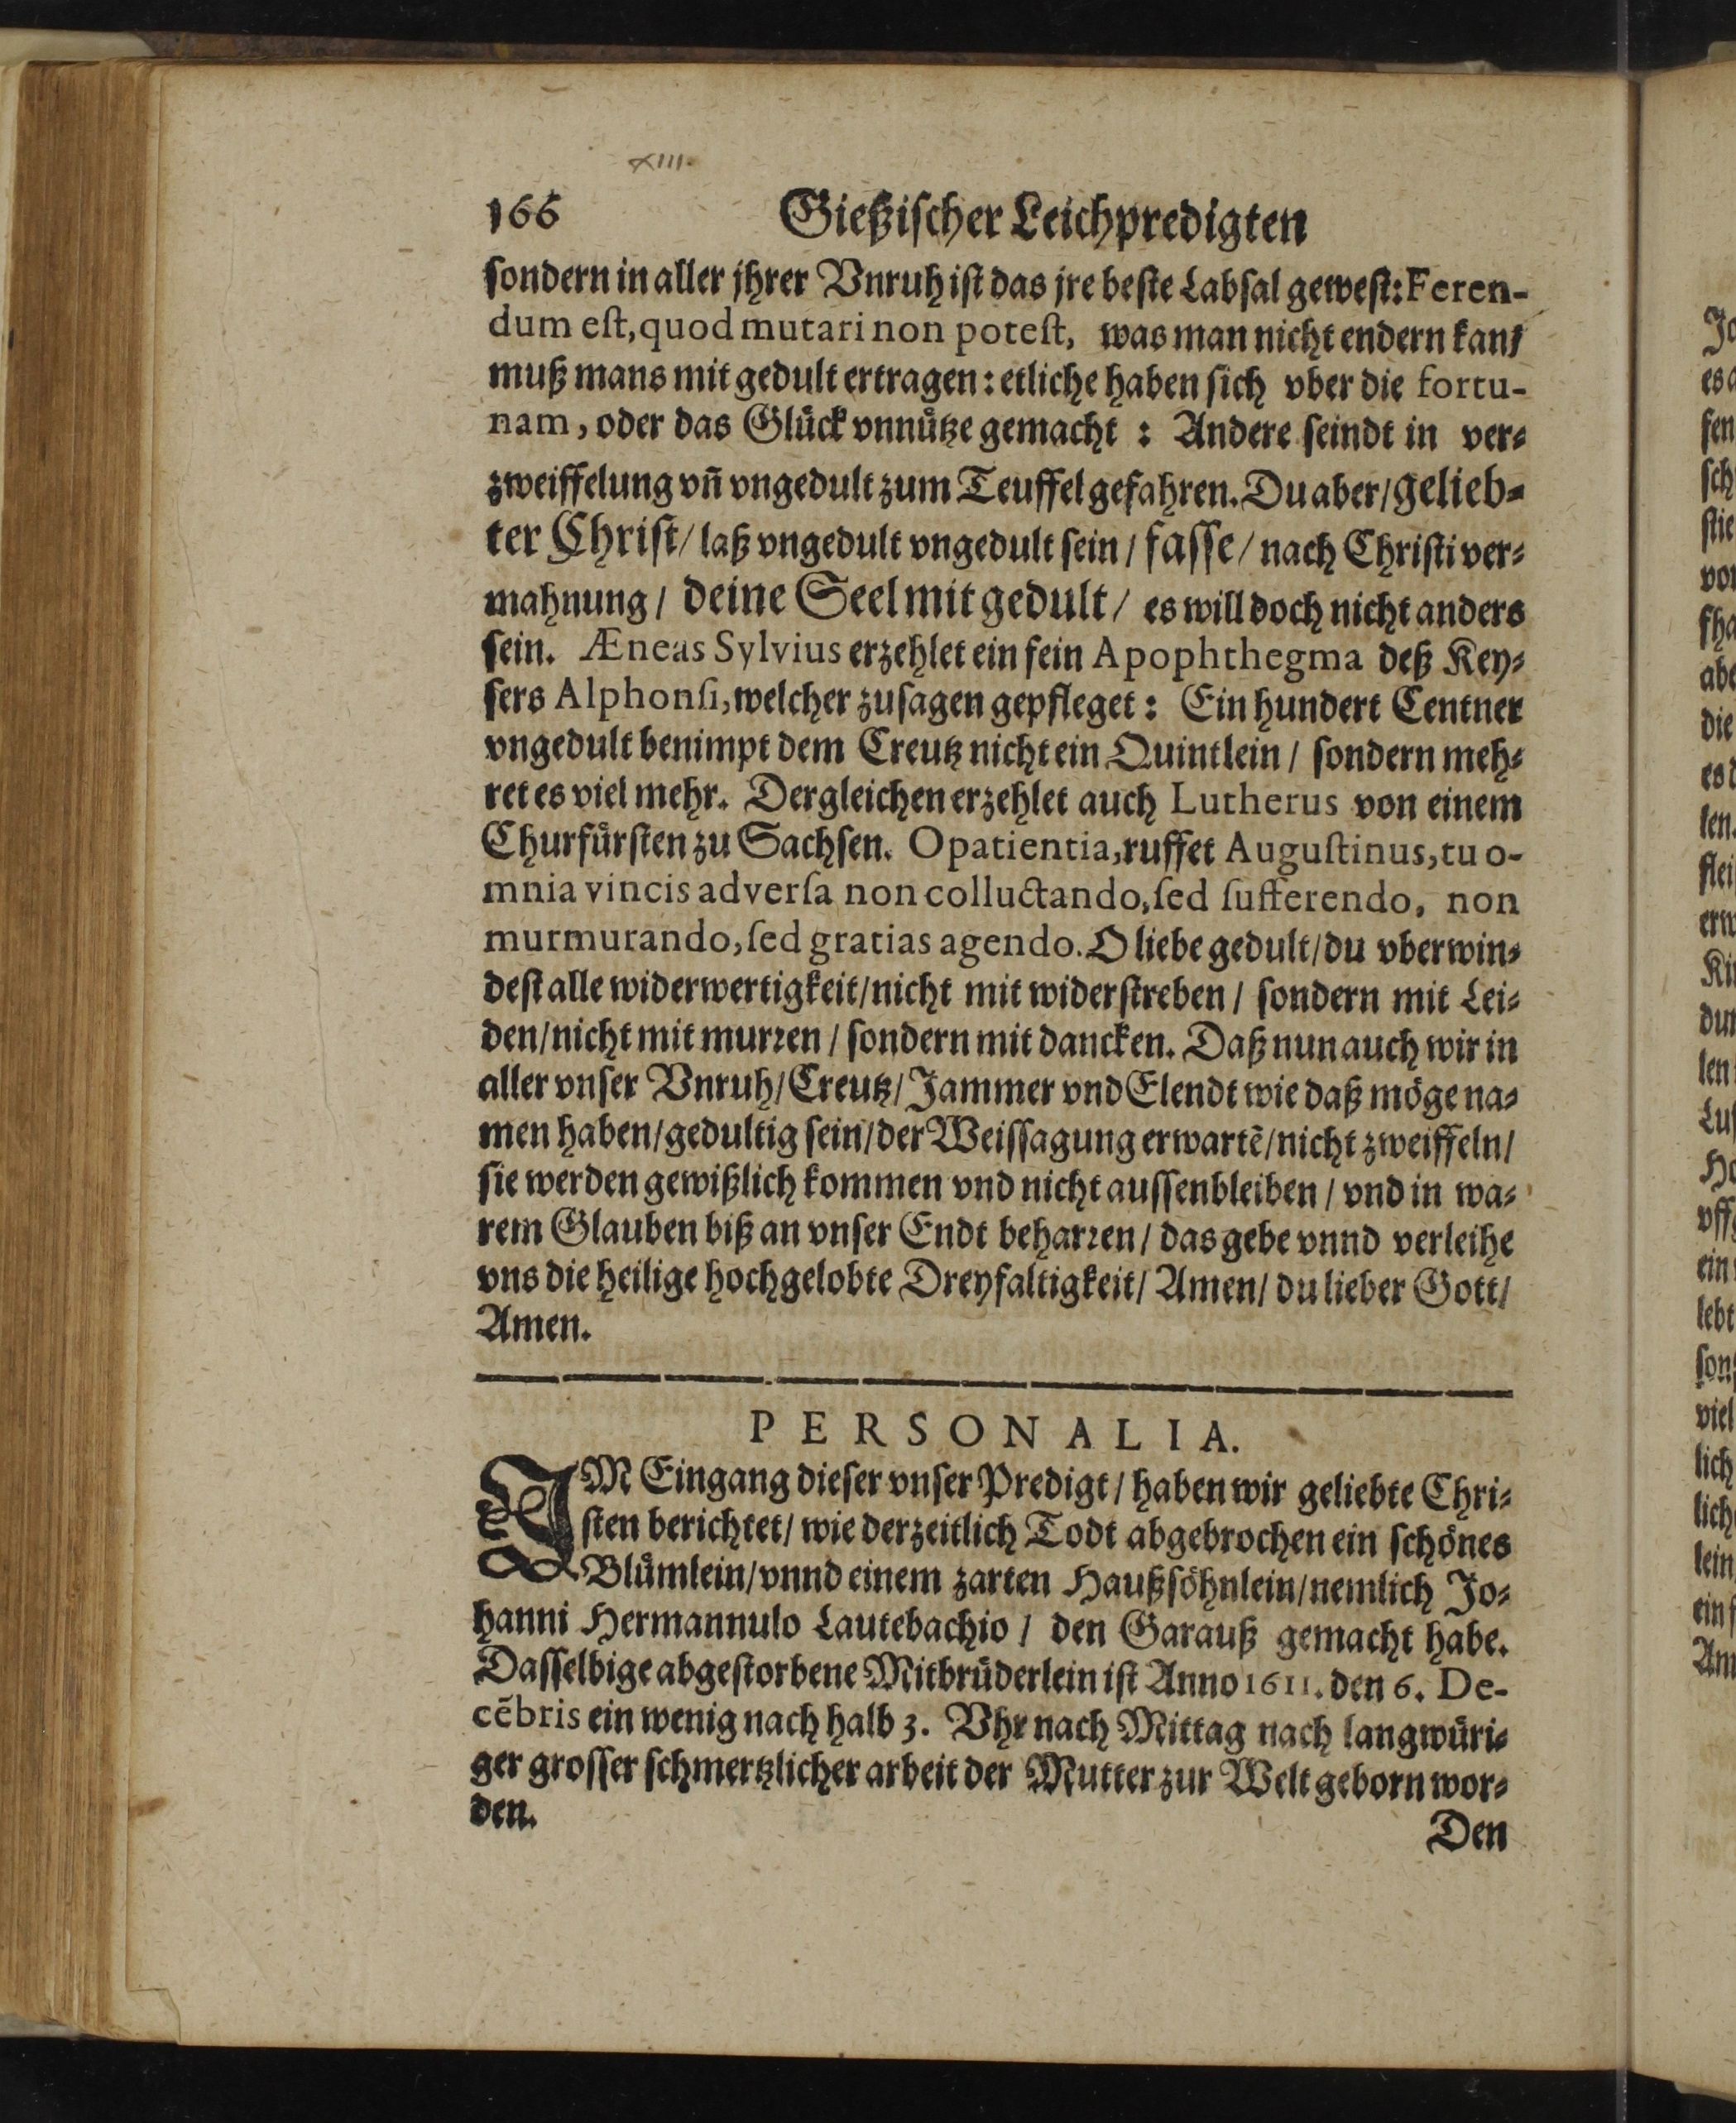 XIII.
166 Gießischer Leichpredigten
sondern in aller jhrer Vnruh ist das jre beste Labsal gewest: Feren-
dum est, quod mutari non potest, was man nicht endern kan/
muß mans mit gedult ertragen: etliche haben sich vber die fortu-
nam, oder das Glück vnnütze gemacht: Andere seindt in ver-
zweiffelung vñ vngedult zum Teuffel gefahren. Du aber/ gelieb-
ter Christ/ laß vngedult vngedult sein/ fasse/ nach Christi ver-
mahnung/ deine Seel mit gedult/ es will doch nicht anders
sein. Æneas Sylvius erzehlet ein fein Apophthegma deß Key-
sers Alphonsi, welcher zusagen gepfleget: Ein hundert Centner
vngedult benimpt dem Creutz nicht ein Quintlein/ sondern meh-
ret es viel mehr. Dergleichen erzehlet auch Lutherus von einem
Churfürsten zu Sachsen. O patientia, ruffet Augustinus, tu o-
mnia vincis adversa non colluctando, sed sufferendo, non
murmurando, sed gratias agendo. O liebe gedult/ du vberwin-
dest alle widerwertigkeit/ nicht mit widerstreben/ sondern mit Lei-
den/ nicht mit murren/ sondern mit dancken. Daß nun auch wir in
aller vnser Vnruh/ Creutz/ Jammer vnd Elendt wie daß möge na-
men haben/ gedultig sein/ der Weissagung erwartẽ/ nicht zweiffeln/
sie werden gewißlich kommen vnd nicht aussenbleiben/ vnd in wa-
rem Glauben biß an vnser Endt beharren/ das gebe vnnd verleihe
vns die heilige hochgelobte Dreyfaltigkeit/ Amen/ du lieber Gott/
Amen.
PERSONALIA.
IM Eingang dieser vnser Predigt/ haben wir geliebte Chri-
sten berichtet/ wie der zeitlich Todt abgebrochen ein schönes
Blümlein/ vnnd einem zarten Haußsöhnlein/ nemlich Jo-
hanni Hermannulo Lautebachio/ den Garauß gemacht habe.
Dasselbige abgestorbene Mitbrüderlein ist Anno 1611. den 6. De-
cẽbris ein wenig nach halb 3. Vhr nach Mittag nach langwüri-
ger grosser schmertzlicher arbeit der Mutter zur Welt geborn wor-
den.
Den